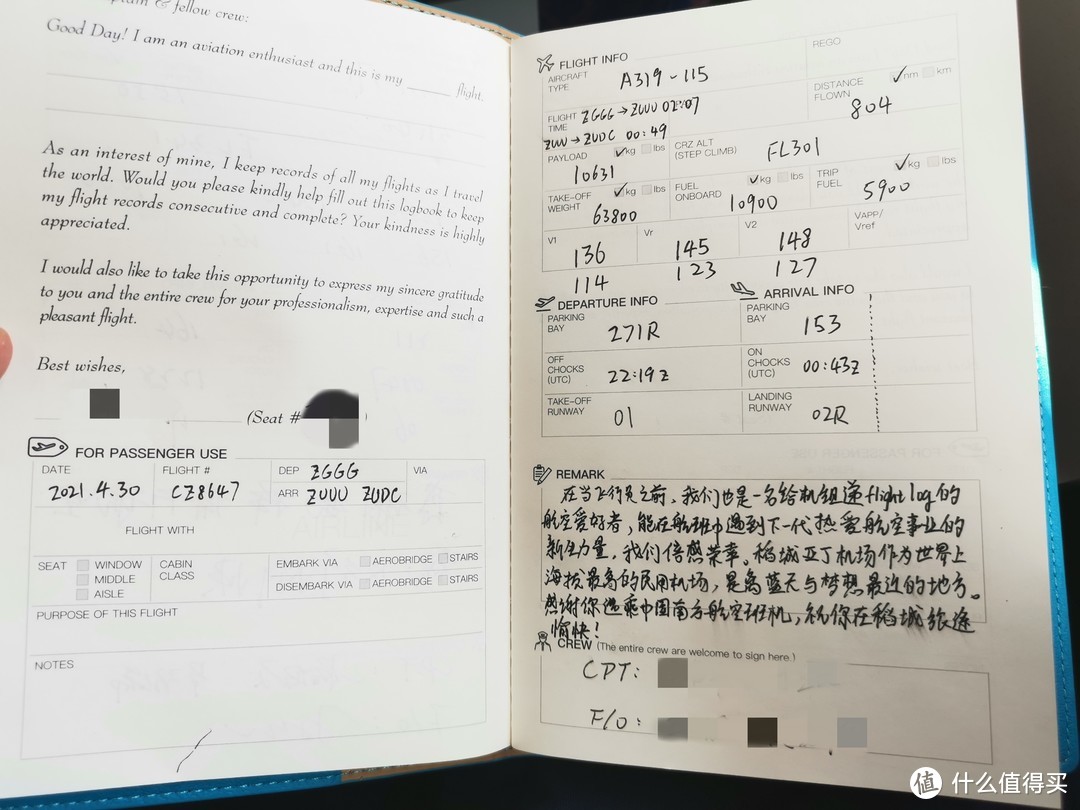 & fellow crew:
Good Day! I am an aviation enthusiast and this is my ______ flight.
As an interest of mine, I keep records of all my flights as I travel
the world. Would you please kindly help fill out this logbook to keep
my flight records consecutive and complete? Your kindness is highly
appreciated.
I would also like to take this opportunity to express my sincere gratitude
to you and the entire crew for your professionalism, expertise and such a
pleasant flight.
Best wishes,
(Seat # )
FOR PASSENGER USE
DATE FLIGHT # DEP ZGGG VIA
2021.4.30 CZ8647 ARR ZUUU ZUDC
FLIGHT WITH
SEAT WINDOW MIDDLE AISLE
CABIN CLASS
EMBARK VIA AEROBRIDGE STAIRS
DISEMBARK VIA AEROBRIDGE STAIRS
PURPOSE OF THIS FLIGHT
NOTES
FLIGHT INFO
AIRCRAFT TYPE A319-115 REGO
FLIGHT TIME ZGGG→ZUUU 02:07
ZUU→ZUDC 00:49
DISTANCE FLOWN ✓nm km 804
PAYLOAD ✓kg lbs 10631
CRZ ALT (STEP CLIMB) FL301
TAKE-OFF WEIGHT ✓kg lbs 63800
FUEL ONBOARD ✓kg lbs 10900
TRIP FUEL ✓kg lbs 5900
V1 136 Vr 145 V2 148 VAPP/Vref
114 123 127
DEPARTURE INFO ARRIVAL INFO
PARKING BAY 271R PARKING BAY 153
OFF CHOCKS (UTC) 22:19z ON CHOCKS (UTC) 00:43z
TAKE-OFF RUNWAY 01 LANDING RUNWAY 02R
REMARK
在当飞行员之前，我们也是一名给机组递flight log的
航空爱好者，能在航班中遇到下一代热爱航空事业的
新生力量，我们倍感荣幸。稻城亚丁机场作为世界上
海拔最高的民用机场，是离蓝天与梦想最近的地方。
感谢你选乘中国南方航空班机，祝你在稻城旅途
愉快！
CREW (The entire crew are welcome to sign here.)
CPT:
F/O:
值 什么值得买